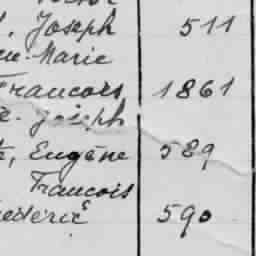 Joseph 511
Marie
Francois 1861
Joseph
Eugène 589
Francois
590